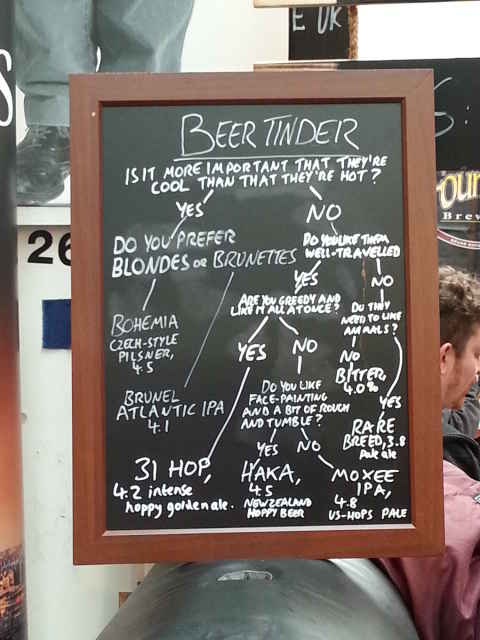 E UK
BEER TINDER
IS IT MORE IMPORTANT THAT THEY'RE
COOL THAN THAT THEY'RE HOT?
YES
NO
DO YOU PREFER
BLONDES OR BRUNETTES
DO YOU LIKE THEM
WELL-TRAVELLED
YES
NO
ARE YOU GREEDY AND
LIKE IT ALL AT ONCE?
DO THEY
NEED TO LIKE
ANIMALS?
BOHEMIA
CZECH-STYLE
PILSNER,
4.5
YES
NO
NO
BITTER,
4.0%
YES
BRUNEL
ATLANTIC IPA
4.1
DO YOU LIKE
FACE-PAINTING
AND A BIT OF ROUGH
AND TUMBLE?
YES
NO
RARE
BREED, 3.8
Pale ale
31 HOP,
4.2 intense
hoppy golden ale.
HAKA,
4.5
NEW ZEALAND
HOPPY BEER
MOXEE
IPA,
4.8
US-HOPS PALE
26
OUR
Brew